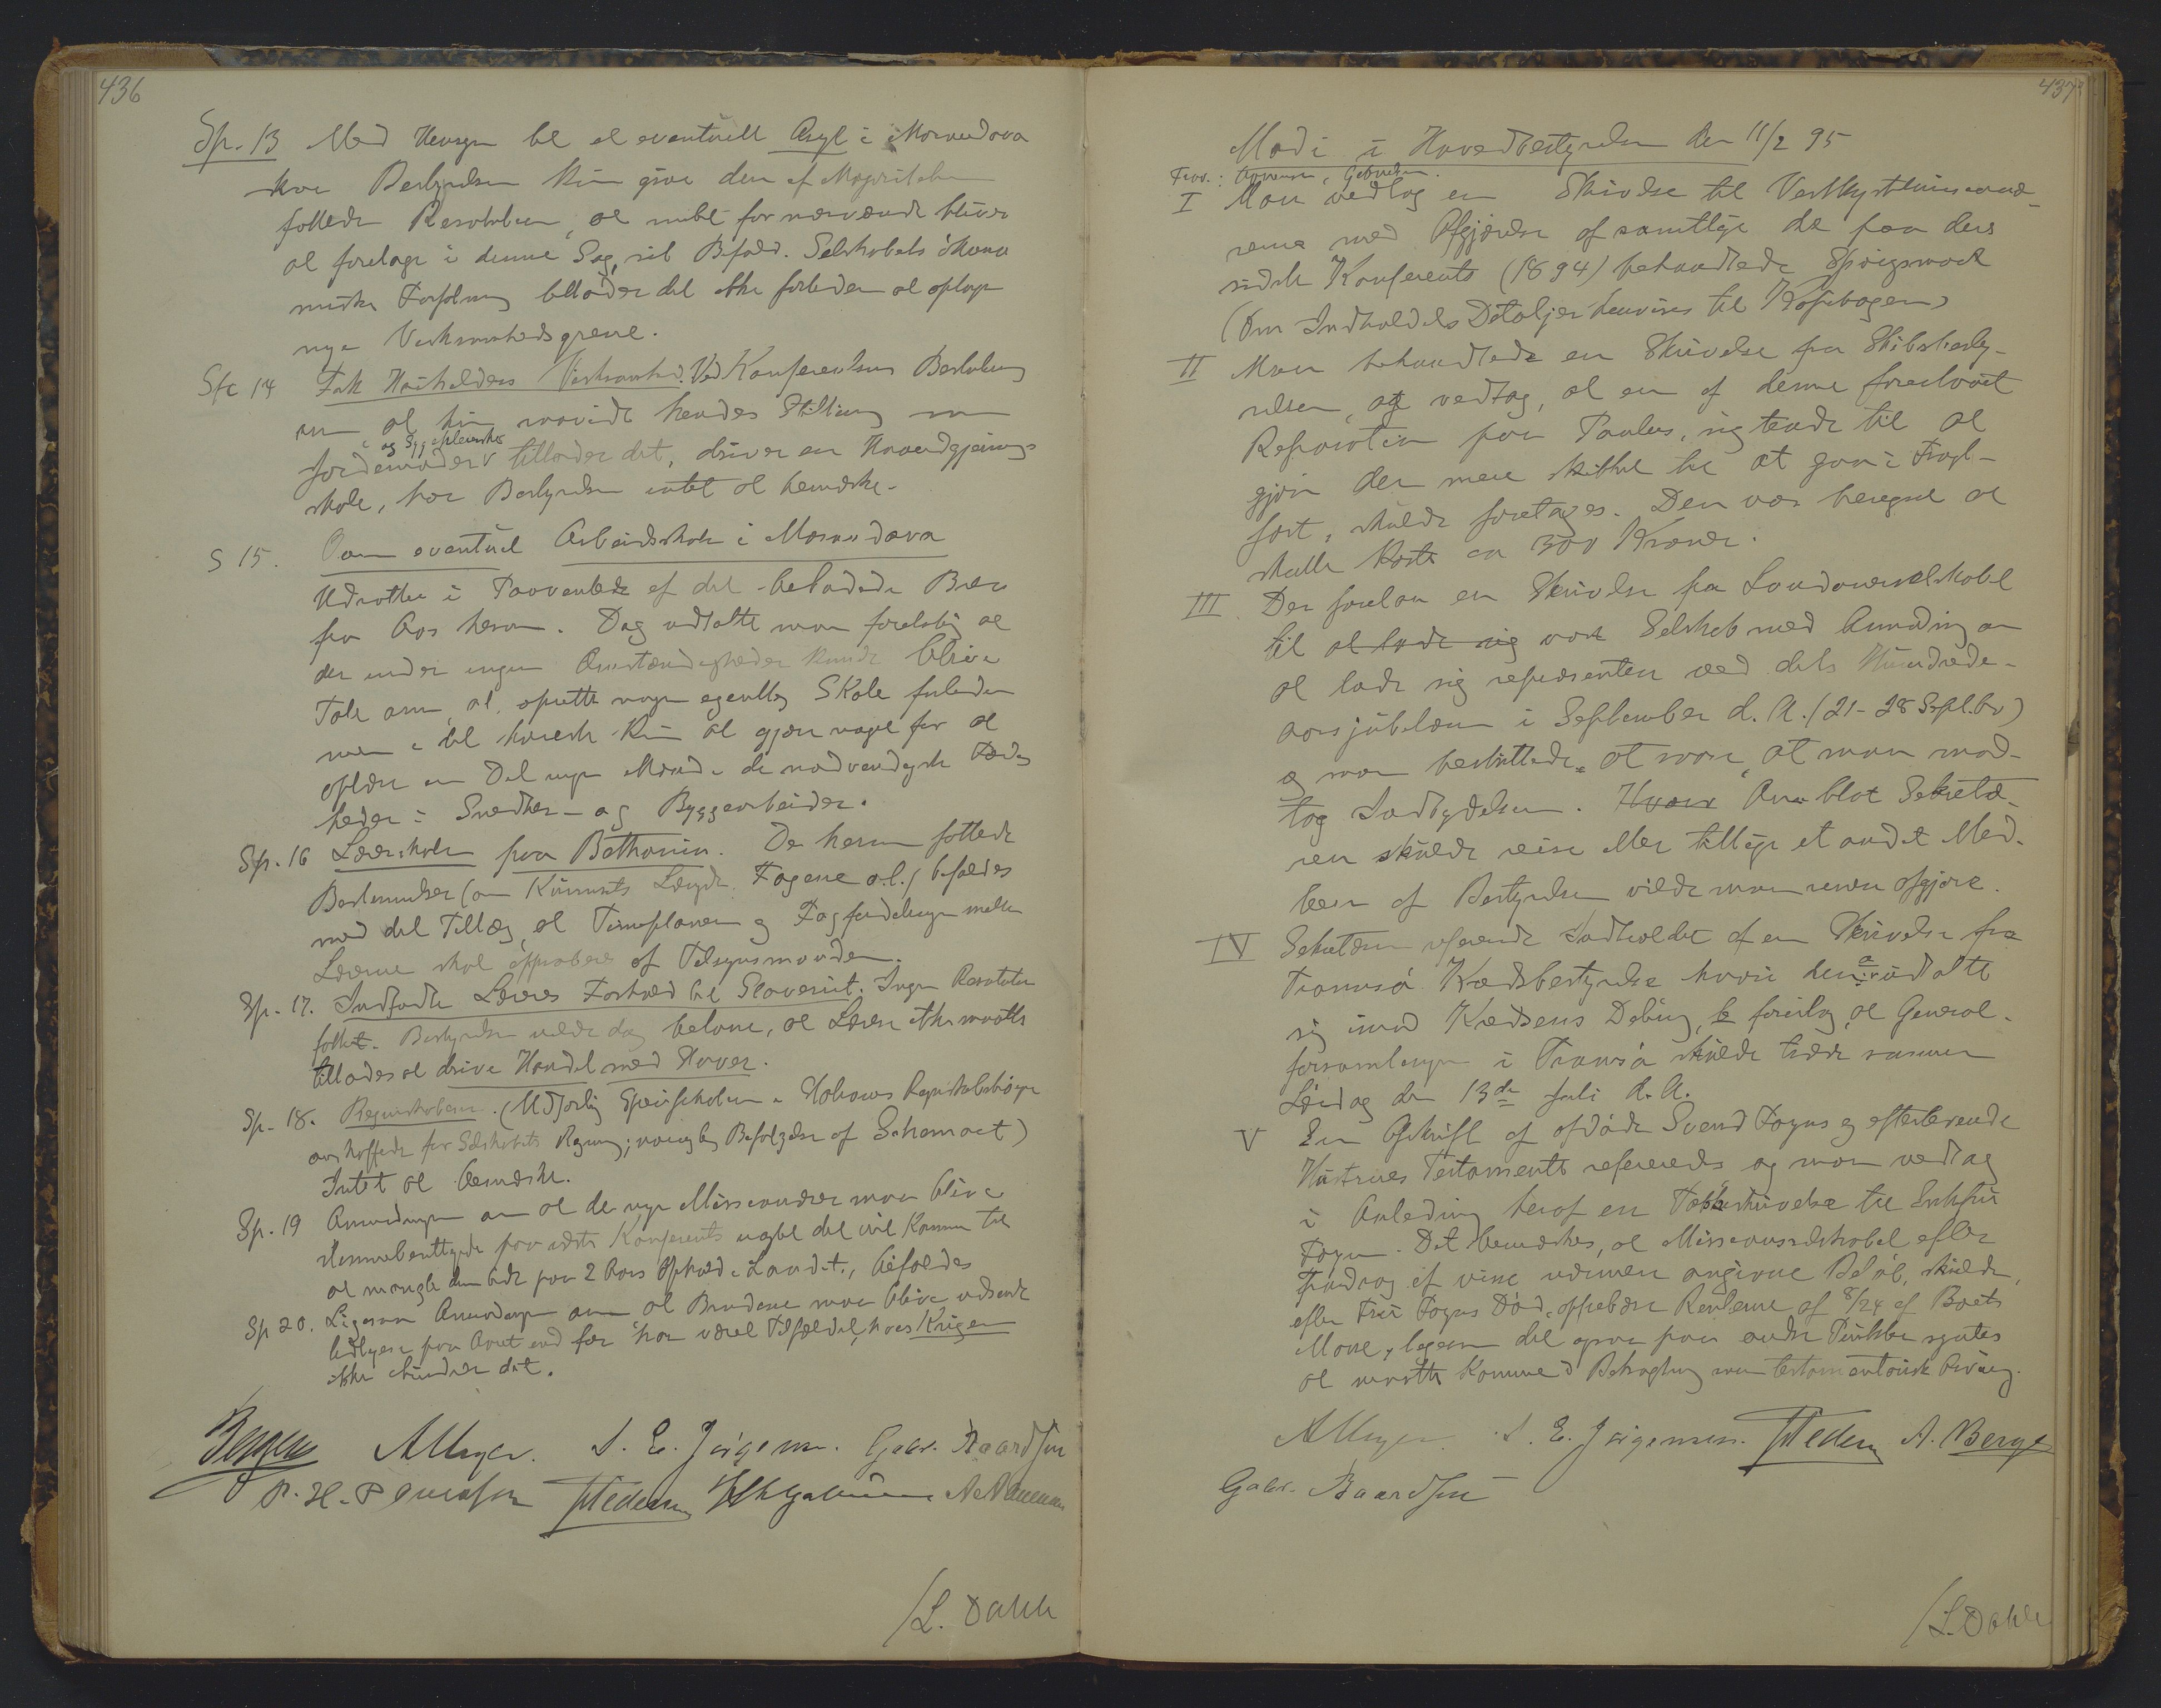 436
Sp. 13 Med Hensyn til et eventuelt Asyl i Morondava
kan Bestyrelsen kun give den af
fattede Resolution, at intet for nærværende bliver
at foretage i denne Sag, sit Bifald. Selskabets økono-
miske Forfatning tillader det ikke forleden at optage
nye Virksomhedsgrene.
Sp 14 Frk Virksomhed. Ved Konferentsens Beslutning
om at hun, saavidt hendes Stilling som
og Sygepleierske
tillader det, driver en Haandgjernings-
skole, har Bestyrelsen intet at bemærke.
S 15. Om eventuel Arbeidsskole i Morondava
Udsattes i Paavente af det bebudede Brev
fra Aas herom. Dog udtalte man foreløbig at
der under ingen Omstændigheder kunde blive
Tale om at oprette nogen egentlig Skole forleden
men i det høieste kun at gjøre noget for at
oplære en Del unge Mænd i de nødvendigste Færdig-
heder i Snedker- og Byggearbeider.
Sp. 16 Lærerskolen paa Bethania. De herom fattede
Bestemmelser (om Kursets Længde, Fagene o.l.) bifaldes
med det Tillæg, at Timeplanen og Fagfordelingen mellem
Lærerne skal approberes af Tilsynsmanden.
Sp. 17. Indfødte Læreres Forhold til Slaveriet. Ingen Resolution
fattet. Bestyrelsen vilde dog betone, at Lærere ikke maatte
tillades at drive Handel med Slaver.
Sp. 18. Regnskaberne. (Udførlig Regnskabsbøger
anskaffede for Selskabets Regning; nøiagtig Befølgelse af Schemaet)
Intet at bemærke.
Sp. 19 Anmodningen om at de nye Missionærer maa blive
stemmeberettigede paa næste Konferents uagtet det vil komme til
at mangle dem lidt paa 2 Aars Ophold i Landet, bifaldes
Sp 20. Ligesom Anmodningen om at Brødrene maa blive udsendt
tidligere paa Aaret end før har været Tilfældet, hvis Krigen
ikke hindrer det.
AMeyer. S. E. Jørgensen. Gabr. Baardsen
/L. Dahle
437
Møde i Hovedbestyrelsen den 11/2 95
I Man vedtog en Skrivelse til Vestkystmissionæ-
rerne med Afgjørelse af samtlige de paa deres
sidste Konferents (1894) behandlede Spørgsmaal
(Om Indholdets Detaljer henvises til Kopibogen)
II Man behandlede en Skrivelse fra Skibsbesty-
relsen, og vedtog, at en af denne foreslaaet
Reparation paa Paulus, sigtende til at
gjøre den mere skikket til at gaa i Fragt-
fart, skulde foretages. Den var beregnet at
skulle koste ca 300 Kroner.
III Der forelaa en Skrivelse fra Londonerselskabet
til at lade sig vort Selskab med Anmodning om
at lade sig repræsentere ved dets Hundrede-
aarsjubilæum i September d. A. (21-28 Sept.)
og man besluttede at svare, at man mod-
tog Indbydelsen. Hvor Om blot Sekretæ-
ren skulde reise eller tillige et andet Med-
lem af Bestyrelsen vilde man senere afgjøre.
IV Sekretæren refererede Indholdet af en Skrivelse fra
Tromsø Kredsbestyrelse hvori denne udtalte
sig imod Kredsens Deling, & foreslog, at General-
forsamlingen i Tromsø skulde træde sammen
Lørdag den 13de Juli d. A.
V En Afskrift af afdøde Svend Foyns og efterlevende
Hustrues Testamente refereredes og man vedtog
i Anledning heraf en Takkeskrivelse til Enkefru
Foyn. Det bemærkes, at Missionsselskabet efter
Fradrag af visse nærmere angivne Beløb, skulde,
efter Fru Foyns Død, oppebære Renterne af 8/24 af Boets
Masse, ligesom det ogsaa paa andre Punkter syntes
at maatte komme i Betragtning som testamentarisk Arving.
AMeyer. S. E. Jørgensen. A. Berge
Gabr. Baardsen
/L. Dahle